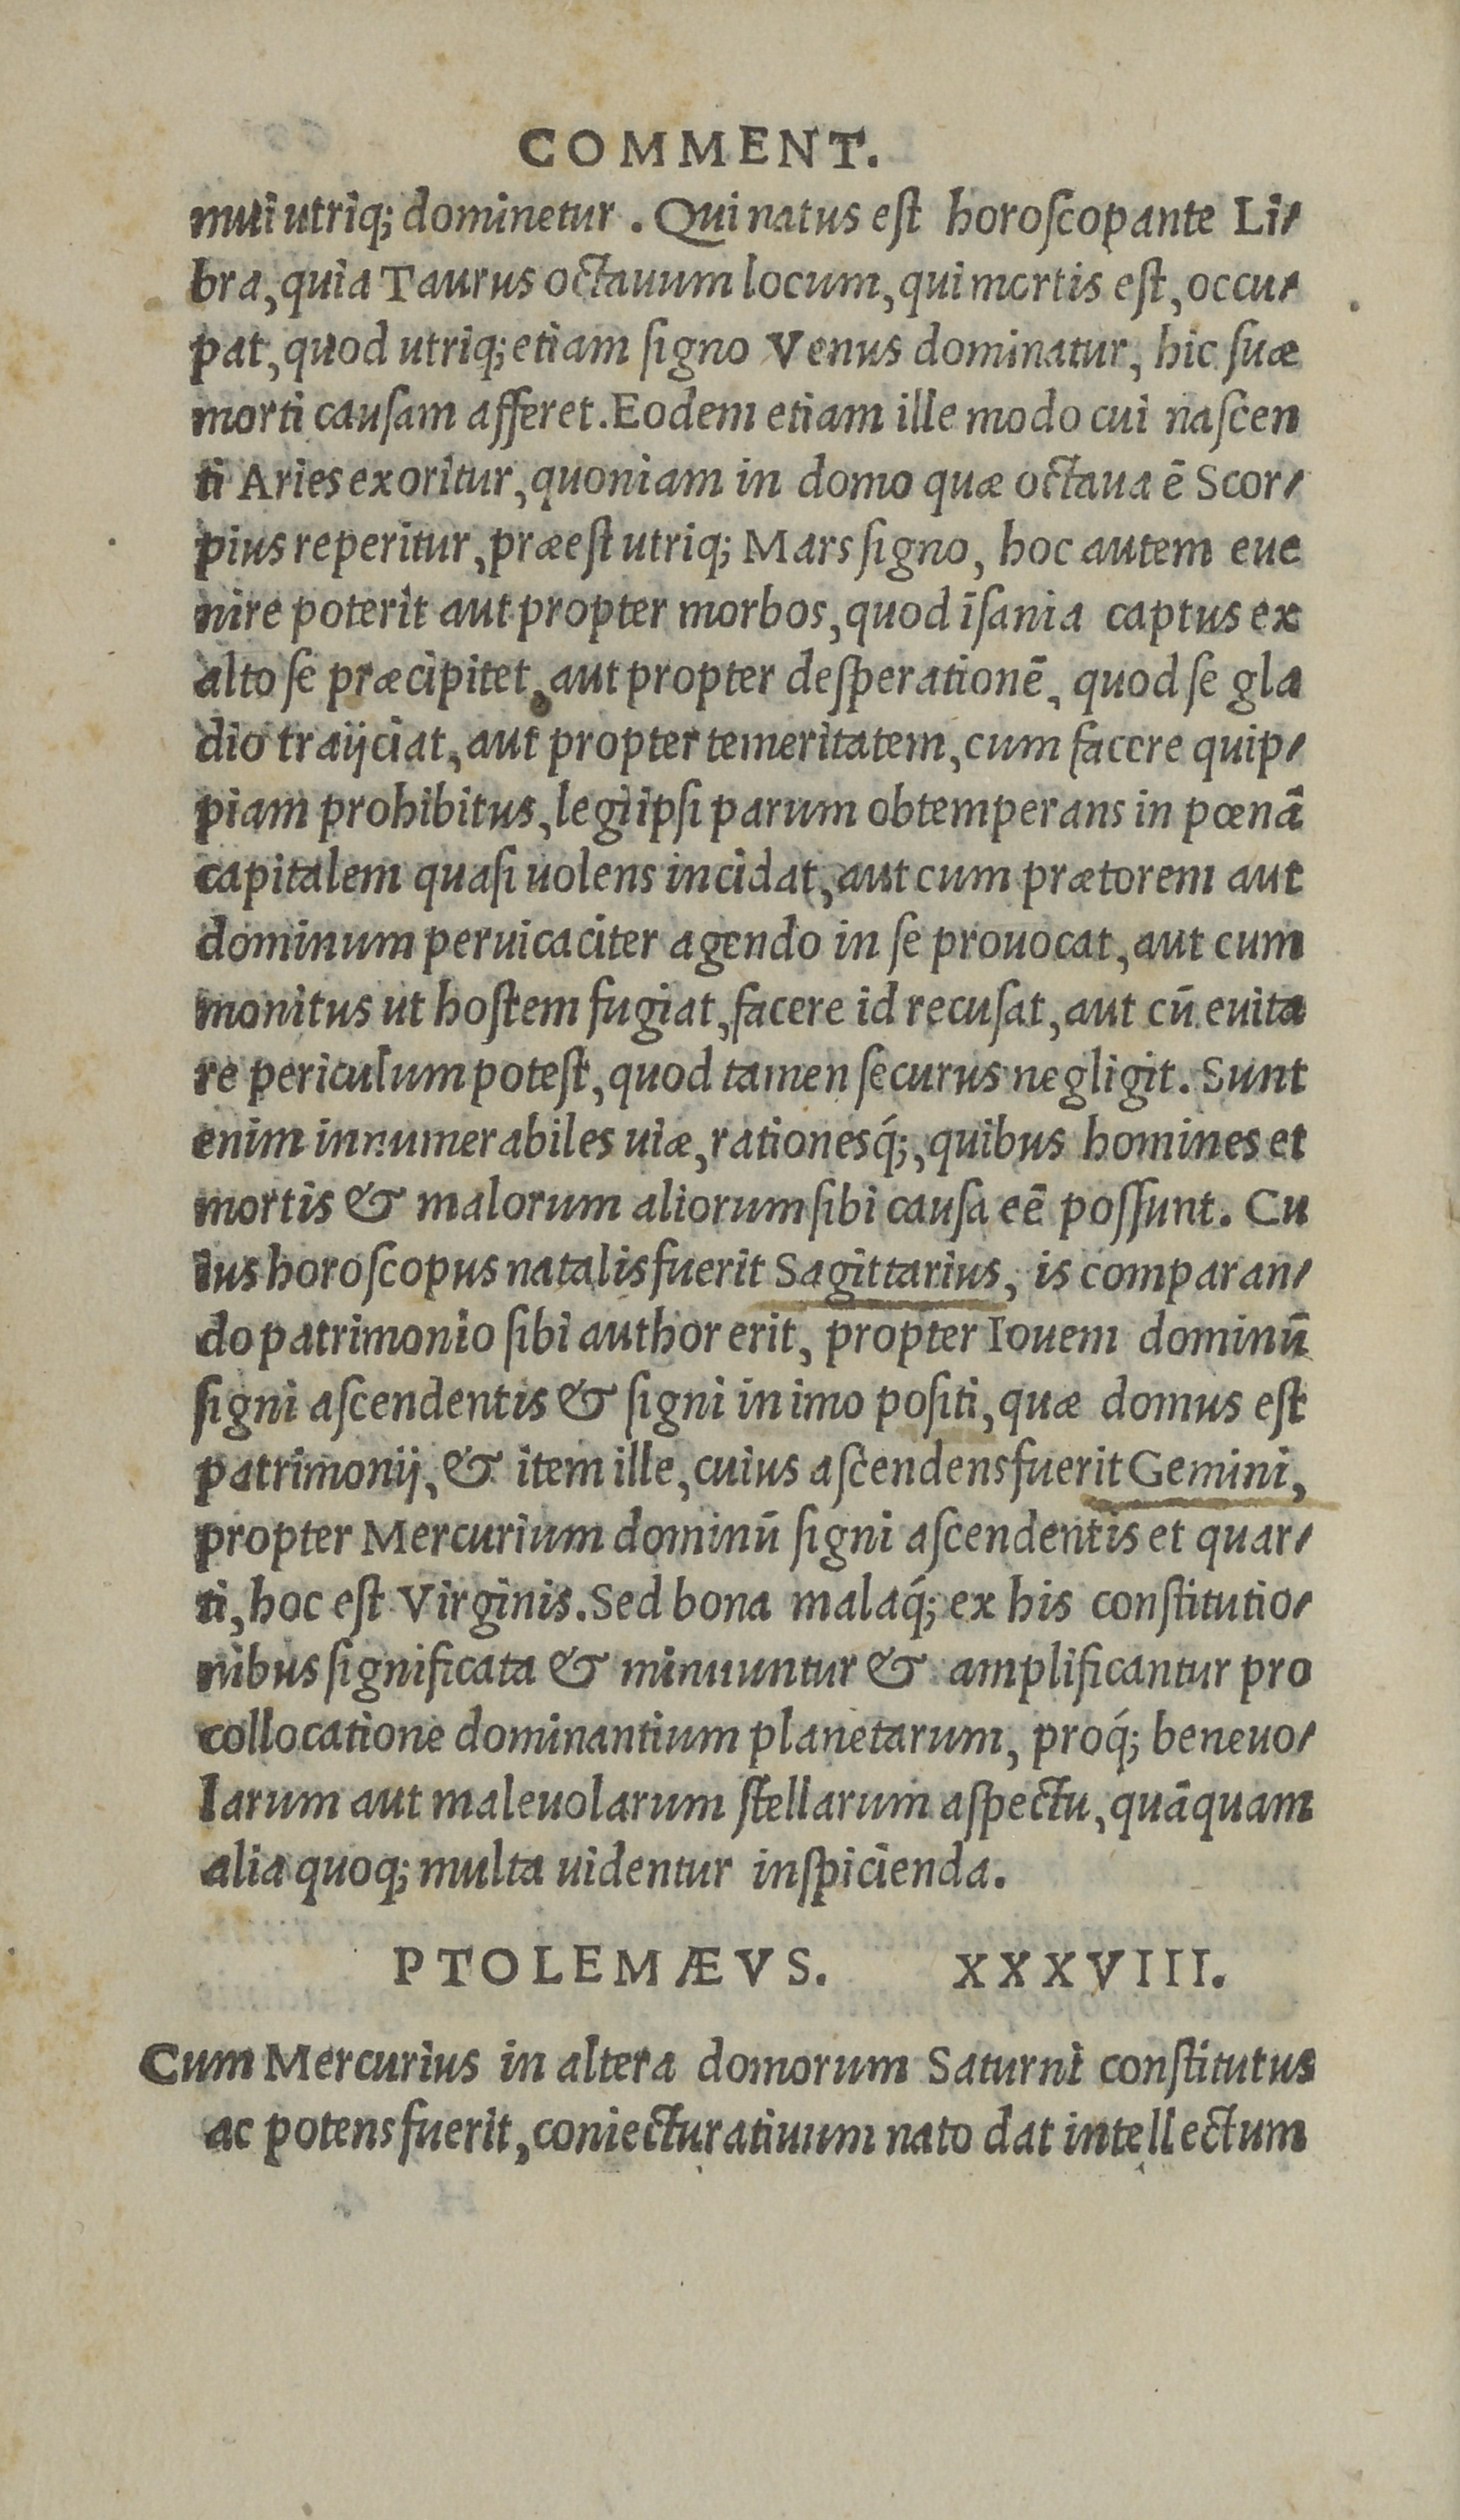 COMMENT.
muti utriq; dominetur. Qui natus est horoscopante Li-
bra, quia Taurus octauum locum, qui mortis est, occu-
pat, quod utriq; etiam signo Venus dominatur, hic suæ
morti causam afferet. Eodem etiam ille modo cui nascen
ti Aries exoritur, quoniam in domo quæ octaua ē Scor-
pius reperitur, præest utriq; Mars signo, hoc autem eue
nire poterit aut propter morbos, quod īsania captus ex
alto se præcipitet, aut propter desperationē, quod se gla
dio traijciat, aut propter temeritatem, cum facere quip-
piam prohibitus, legi ipsi parum obtemperans in pœnā
capitalem quasi uolens incidat, aut cum prætorem aut
dominum peruicaciter agendo in se prouocat, aut cum
monitus ut hostem fugiat, facere id recusat, aut cū euita
re periculum potest, quod tamen securus negligit. Sunt
enim innumerabiles uiæ, rationesq́;, quibus homines et
mortis & malorum aliorum sibi causa eē possunt. Cu
ius horoscopus natalis fuerit Sagittarius, is comparan-
do patrimonio sibi author erit, propter Iouem dominū
signi ascendentis & signi in imo positi, quæ domus est
patrimonij, & item ille, cuius ascendens fuerit Gemini,
propter Mercurium dominū signi ascendentis et quar-
ti, hoc est Virginis. Sed bona malaq́; ex his constitutio-
nibus significata & minuuntur & amplificantur pro
collocatione dominantium planetarum, proq́; beneuo-
larum aut maleuolarum stellarum aspectu, quāquam
alia quoq; multa uidentur inspicienda.
PTOLEMÆVS. XXXVIII.
Cum Mercurius in altera domorum Saturni constitutus
ac potens fuerit, coniecturatiuum nato dat intellectum